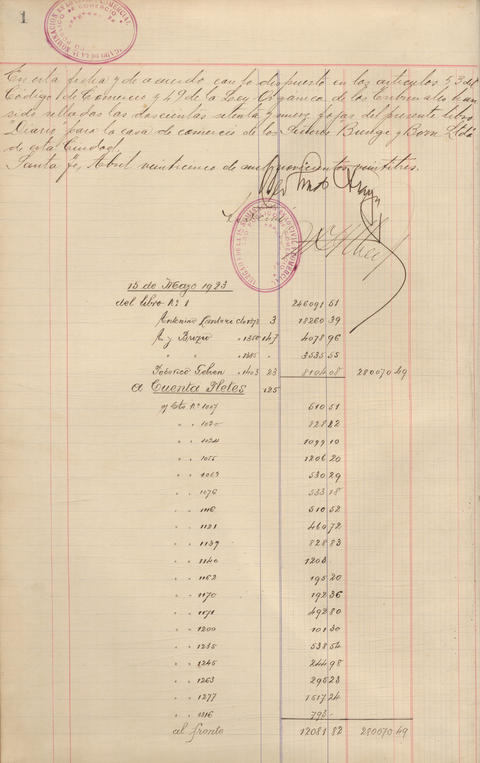 1
En esta fecha y de acuerdo con lo dispuesto en los artículos 53 del
Código de Comercio y 49 de la Ley Orgánica de los Tribunales han
sido selladas las doscientas setenta y nueve fojas del presente libro
Diario para la casa de comercio de los Señores Bunge y Born Ltda
de esta Ciudad.
Santa Fe, Abril veinticinco de mil novecientos veintitres.
15 de Mayo 1923
del libro Nº 1 246091 51
Antonino 3 18260 39
A. y 1350 147 4078 96
" " " 1385 3535 55
Federico " 1403 23 8104 08 280070 49
a Cuenta Fletes 125
s/ Cta Nº 1007 510 51
" " 1020 828 22
" " 1024 1099 10
" " 1055 1206 20
" " 1063 530 29
" " 1076 533 18
" " 1116 510 52
" " 1121 460 72
" " 1139 828 83
" " 1140 1203
" " 1162 195 20
" " 1170 192 36
" " 1171 492 80
" " 1200 101 30
" " 1235 538 54
" " 1245 244 98
" " 1263 295 23
" " 1277 1517 24
" " 1316 793 -
al frente 12081 82 280070 49